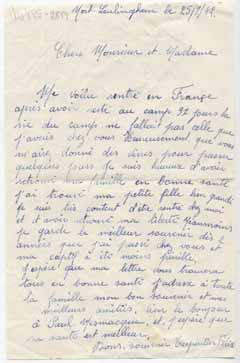 Mont-Leulinghem le 25/7/42
Chers Monsieur et Madame
Me voilà rentré en France
après avoir resté au camp 32 jours la
vie du camp ne fallait pas celle que
j'avais chez vous. Heureusement que vous
m'avez donné des vivres pour passer
quelques jours je suis heureux d'avoir
retrouvé ma famille en bonne santé
j'ai trouvé ma petite fille bien grandi
je suis très content d'être rentré chez moi
et d'avoir retrouvé ma liberté
je garde le meilleur souvenir des
années que j'ai passé chez vous et
ma captivité moins
j'espère que ma lettre vous trouvera
tous en bonne santé j'adresse à toute
la famille mon bon souvenir et mes
meilleurs amitiés, bien le bonjour
à Paul et j'espère que
sa santé est meilleur.